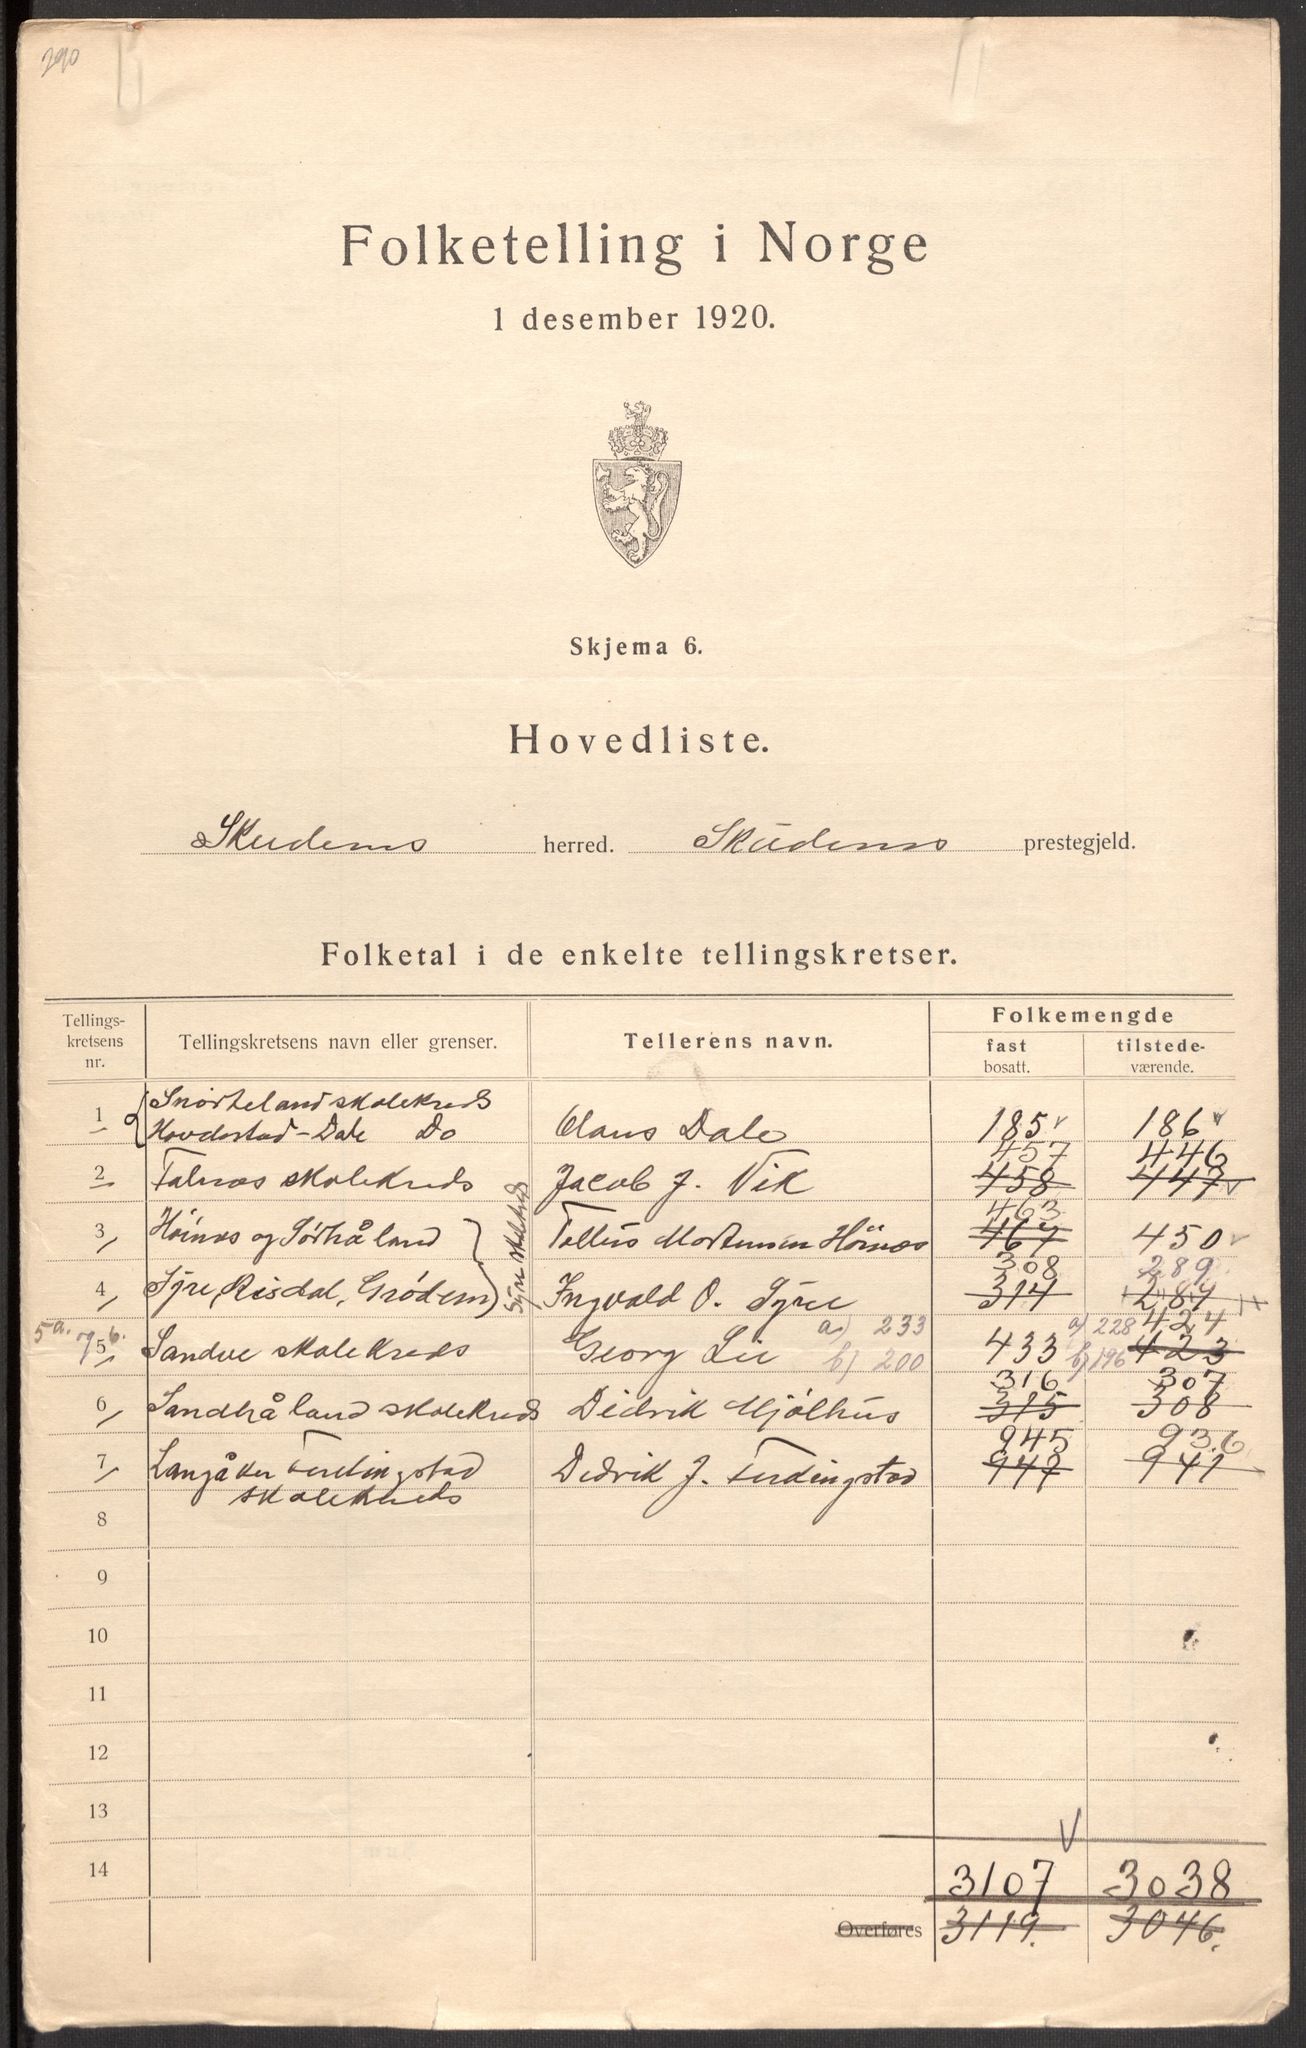 290
Folketelling i Norge
1 desember 1920.
Skjema 6.
Hovedliste.
Skudenes herred. Skudenes prestegjeld.
Folketal i de enkelte tellingskretser.
Tellings-kretsens nr. Tellingskretsens navn eller grenser. Tellerens navn. Folkemengde
fast bosatt. tilstede-værende.
Snørteland skolekreds
1 Hovdestad - Dale Do Claus Dale 185 186
457 446
2 Falnæs skolekreds Jacob J. Vik 458 447
463
3 Høinæs og Sørhåland Syre skolekreds Tollius Mortensen Høinæs 467 450
308 289
4 Syre, Risdal, Grødem Ingvald O. Syre 314 289
a) 233 a) 228 424
5a. og b. 5 Sandve skolekreds Georg Lie b) 200 433 b) 196 423
316 307
6 Sandhåland skolekreds Didrik Mjölhus 315 308
945 936
7 Langåker Ferkingstad Didrik J. Ferkingstad 947 941
skolekreds
8
9
10
11
12
13
14 3107 3038
Overføres 3119. 3046.